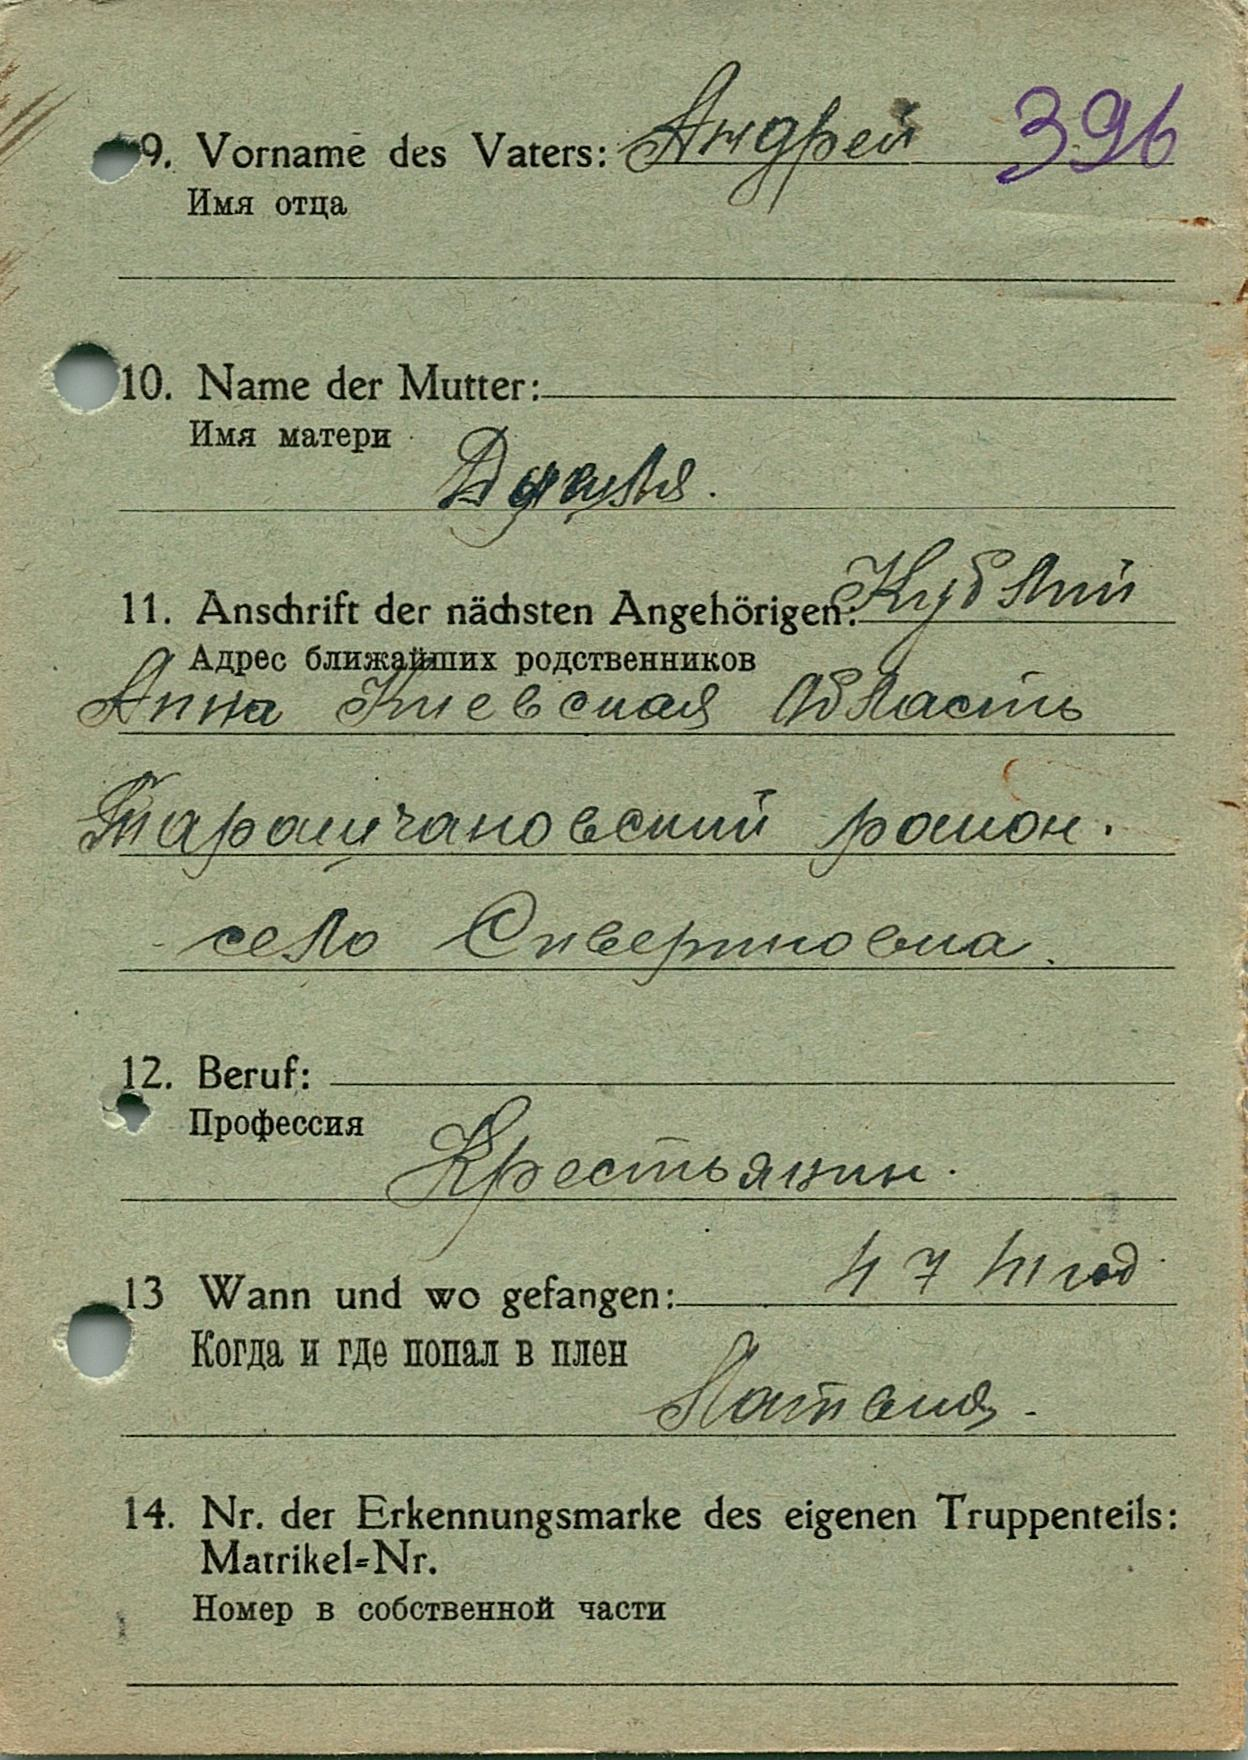 9. Vorname des Vaters: Андрей 396
Имя отца
10. Name der Mutter:
Имя матери
11. Anschrift der nächsten Angehörigen: Кублий
Адрес ближайших родственников
Анна Киевская Область
район.
село Сквериновка.
12. Beruf:
Профессия
Крестьянин.
13 Wann und wo gefangen: 4 7 41 год
Когда и где попал в плен
Латвия.
14. Nr. der Erkennungsmarke des eigenen Truppenteils:
Matrikel=Nr.
Номер в собственной части